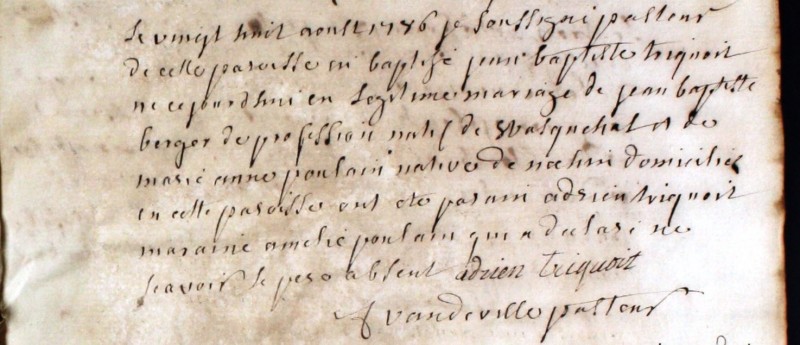 Le vingt huit aoust 1786 je soussigné pasteur
de cette paroisse ai baptizé jean baptiste triquoit
né cejourdhui en Legitime mariage de jean baptiste
berger de profession natif de Wasquehal et de
marie anne poulain native de nechin domiciliés
en cette paroisse ont eté parain adrien triquoit
maraine amelie poulain qui a declaré ne
scavoir le pere absent adrien triquoit
vandeville pasteur